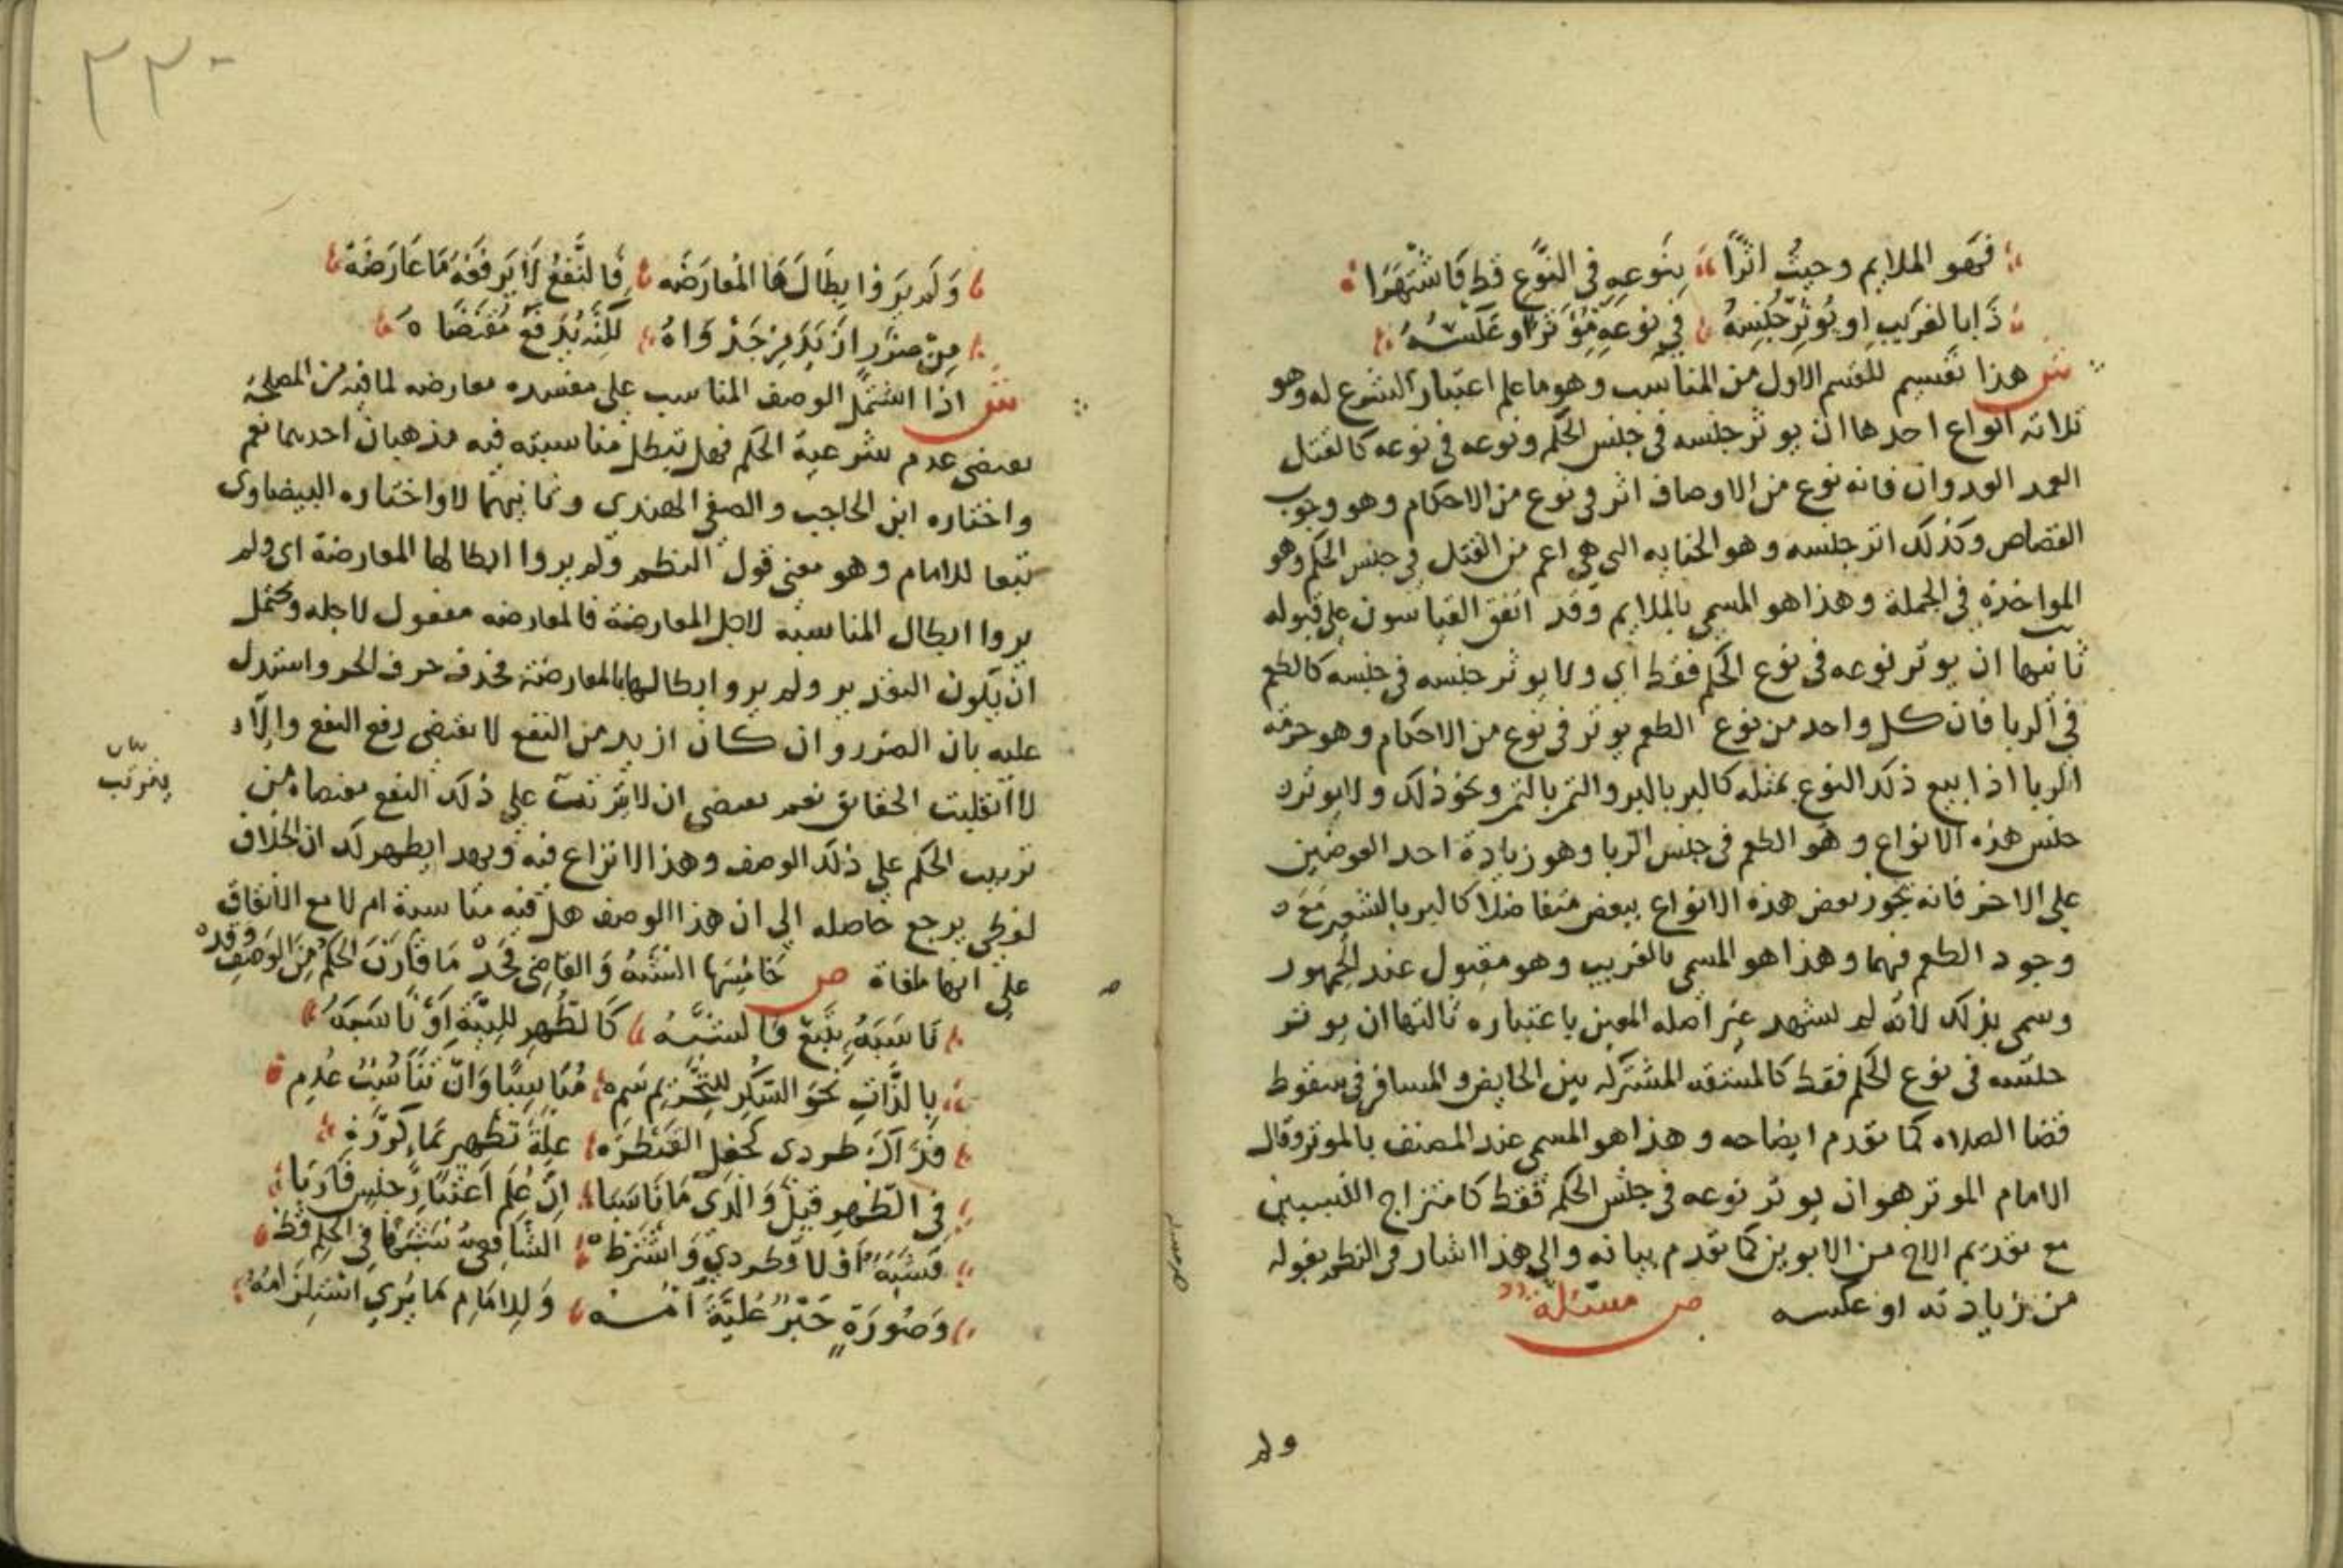 فهو الملايم وحيث اثرا بنوعه في النوع قط فاشتهرا
ذا بالغريب او يوثر جنسه في نوعه موثرا او عكسه
ش هذا تقسيم للقسم الاول من المناسب وهو ما علم اعتبار الشرع له وهو
ثلاثه انواع احدها ان يوثر جنسه في جنس الحكم ونوعه في نوعه كالقتل
العمد العدوان فانه نوع من الاوصاف اثر في نوع من الاحكام وهو وجوب
القصاص وكذلك اثر جنسه وهو الجنايه التي هي اعم من القتل في جنس الحكم وهو
المواخذة في الجملة وهذا هو المسمي بالملايم وقد اتفق القياسون علي قبوله
ثانيها ان يوثر نوعه في نوع الحكم فقط اي ولا يوثر جنسه في جنسه كالطعم
في الربا فان كل واحد من نوع الطعم يوثر في نوع من الاحكام وهو حرمة
الربا اذا بيع ذلك النوع بمثله كالبر بالبر والتمر بالتمر ونحو ذلك ولا يوثر
جنس هذه الانواع وهو الطعم في جنس الربا وهو زيادة احد العوضين
علي الاخر فانه يجوز بعض هذه الانواع ببعض متفاضلا كالبر بالشعير مع
وجود الطعم فيهما وهذا هو المسمي بالغريب وهو مقبول عند الجمهور
وسمي بذلك لانه لم يشهد غير اصله المعين باعتباره ثالثها ان يوثر
جنسه في نوع الحكم فقط كالمشقه المشتركه بين الحايض والمسافر في سقوط
قضا الصلاه كما تقدم ايضاحه وهذا هو المسمي عند المصنف بالموثر وقال
الامام الموثر هو ان يوثر نوعه في جنس الحكم فقط كامتزاج النسبين
مع تقديم الاخ من الابوين كما تقدم بيانه والي هذا اشار في النظم بقوله
من زيادته او عكسه ص مسئلة
ولم
٢٣٠
ولم يروا ابطالها المعارضه فالنفع لا يرفعه ما عارضه
من ضرر ازيد من جدواه لكنه يدفع مقتضاه
ش اذا اشتمل الوصف المناسب علي مفسده معارضه لما فيه من المصلحة
تقتضي عدم شرعية الحكم فهل تبطل مناسبته فيه مذهبان احدهما نعم
واختاره ابن الحاجب والصفي الهندي وثانيهما لا واختاره البيضاوي
تبعا للامام وهو معني قول النظم ولم يروا ابطالها المعارضة اي ولم
يروا ابطال المناسبة لاجل المعارضة فالمعارضه مفعول لاجله ويحتمل
ان يكون التقدير ولم يروا ابطالها بالمعارضة فحذف حرف الجر واستدل
عليه بان الضرر وان كان ازيد من النفع لا يقتضي رفع النفع والا
لانقلبت الحقايق نعم يقتضي ان لا يترتب علي ذلك النفع مقتضاه من
ترتيب الحكم علي ذلك الوصف وهذا لا نزاع فيه وبهذا يظهر لك ان الخلاف
لفظي يرجع حاصله الي ان هذا الوصف هل فيه مناسبة ام لا مع الاتفاق
علي انها ملغاة ص خامسها الشبه والقاضي فحد ما قارن الحكم من الوصف وقد
ناسبه بتبع فالشبه كالطهر للنية او ناسبه
بالذات نحو السكر للتحريم سم مناسبا وان تناسب عدم
فذاك طردي كجعل القنطره علة تطهير بما كرره
في الطهر قيل والذي ما ناسبا ان علم اعتبار جنس قاربا
فشبه او لا فطردي واشترط الشافعي شبها في الحكم قط
وصورة حبر علية امه وللامام ما يري استلزامه
بيان
يترتب